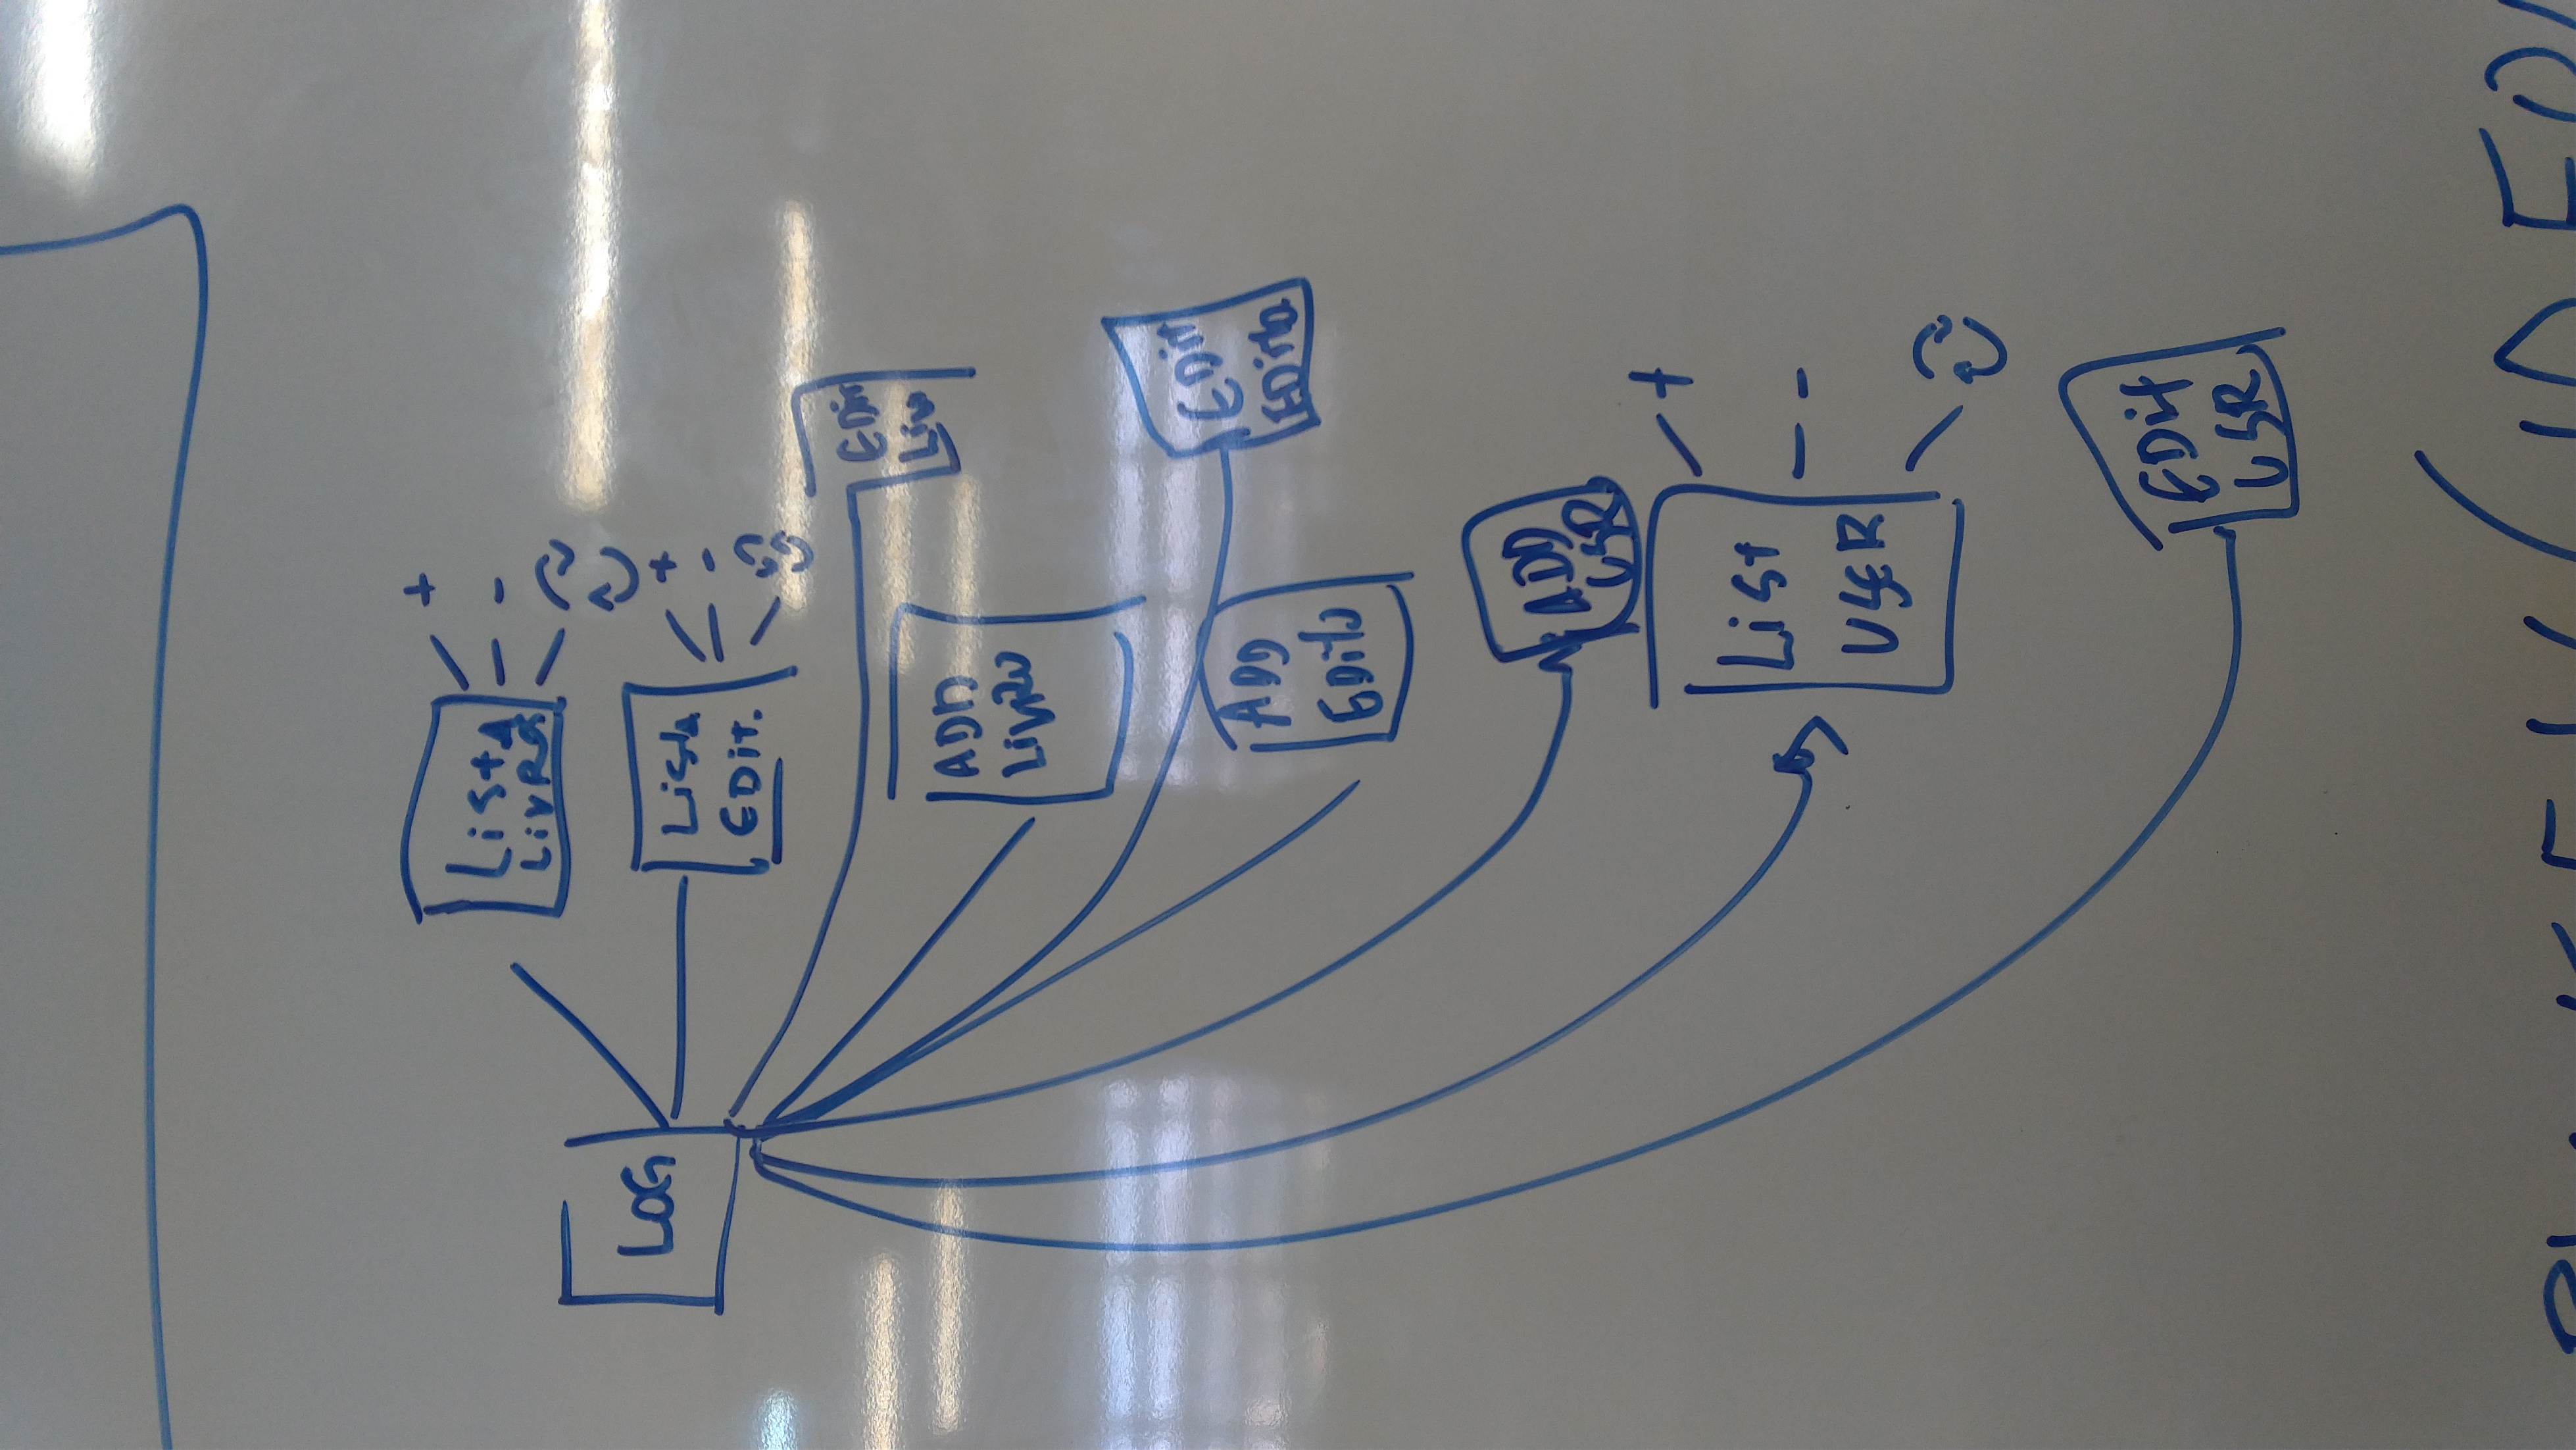 LISTA
LIVRO
+
-
LOG
LISTA
EDIT.
+
-
EDIT
LIV
ADD
LIVRO
EDIT
EDITO
ADD
EDITO
ADD
USR
+
LIST
USER
-
EDIT
USR